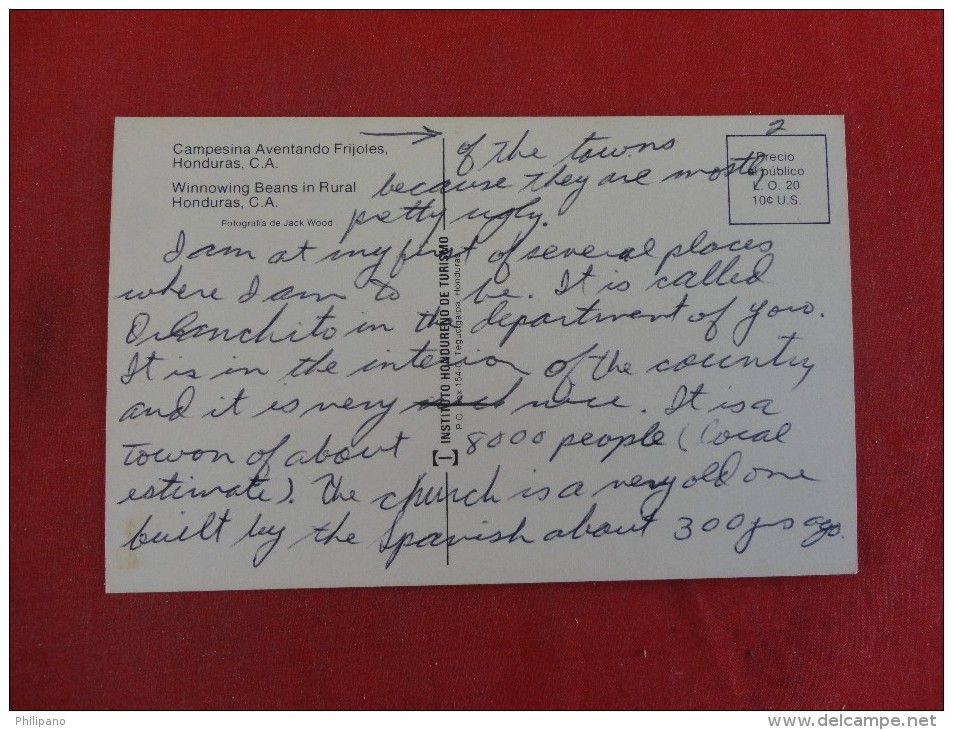 Campesina Aventando Frijoles,
Honduras, C.A.
Winnowing Beans in Rural
Honduras, C.A.
Fotografía de Jack Wood
2
Precio
al público
L. O. 20
10¢ U.S.
of the towns
because they are mostly
pretty ugly.
I am at my first of several places
where I am to be. It is called
Olanchito in the department of Yoro.
It is in the interior of the country
and it is very nice. It is a
town of about 8000 people (local
estimate). The church is a very old one
built by the Spanish about 300 yrs ago.
INSTITUTO HONDUREÑO DE TURISMO
P.O. Box 154-C Tegucigalpa, Honduras
Philipano
www.delcampe.net